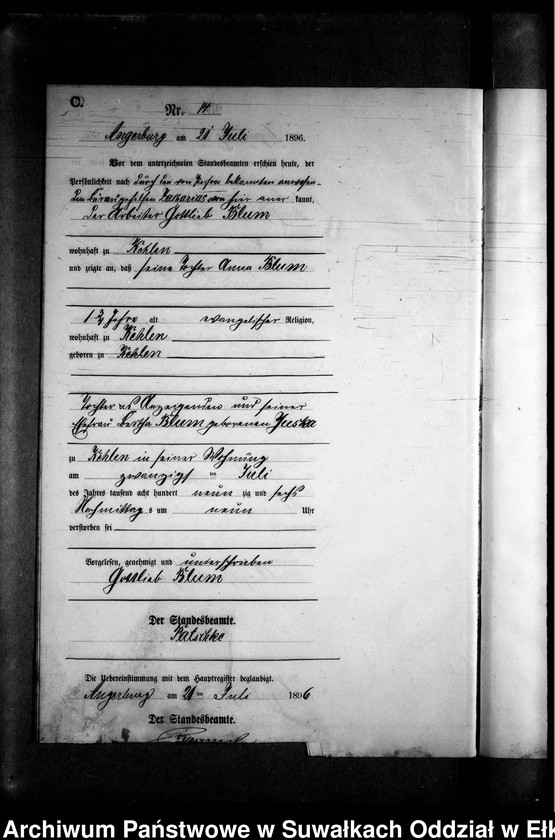 C.
Nr. 14.
Angerburg am 21 Juli 1896.
Vor dem unterzeichneten Standesbeamten erschien heute, der
Persönlichkeit nach durch den von Person bekannten anwesen-
den Bureaugehilfen Zakarias von hier aner kannt,
der Arbeiter Gottlieb Blum
wohnhaft zu Kehlen
und zeigte an, daß seine Tochter Anna Blum
Jahre alt evangelischer Religion,
wohnhaft zu Kehlen
geboren zu Kehlen
Tochter des Anzeigenden und seiner
Ehefrau Bertha Blum geborenen
zu Kehlen in seiner Wohnung
am zwanzigsten Juli
des Jahres tausend acht hundert neun zig und sechs
Nachmittag s um neun Uhr
verstorben sei
Vorgelesen, genehmigt und unterschrieben
Gottlieb Blum
Der Standesbeamte.
Die Uebereinstimmung mit dem Hauptregister beglaubigt.
Angerburg am 21 ten Juli 1896
Der Standesbeamte.
Archiwum Państwowe w Suwałkach Oddział w Ełk